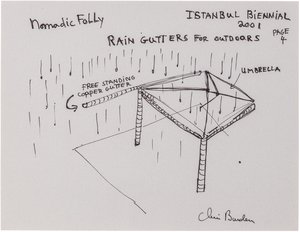 Nomadic Folly
ISTANBUL BIENNIAL
2001
PAGE
4
RAIN GUTTERS FOR OUTDOORS
UMBRELLA
FREE STANDING
COPPER GUTTER
Chris Burden